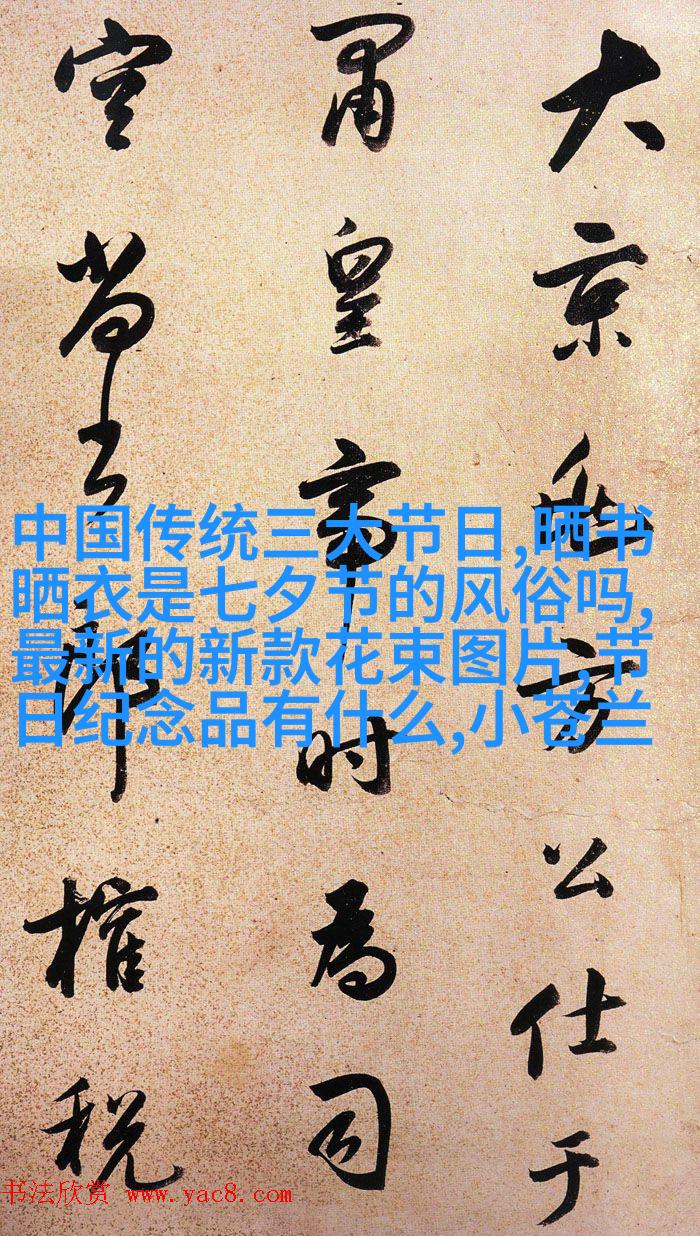 大京兆公仕于
肅皇帝時為司
空尚書郎榷稅
中国传统三大节日,晒书
晒衣是七夕节的风俗吗,
最新的新款花束图片,节
日纪念品有什么,小苍兰
书法欣赏 www.yac8.com